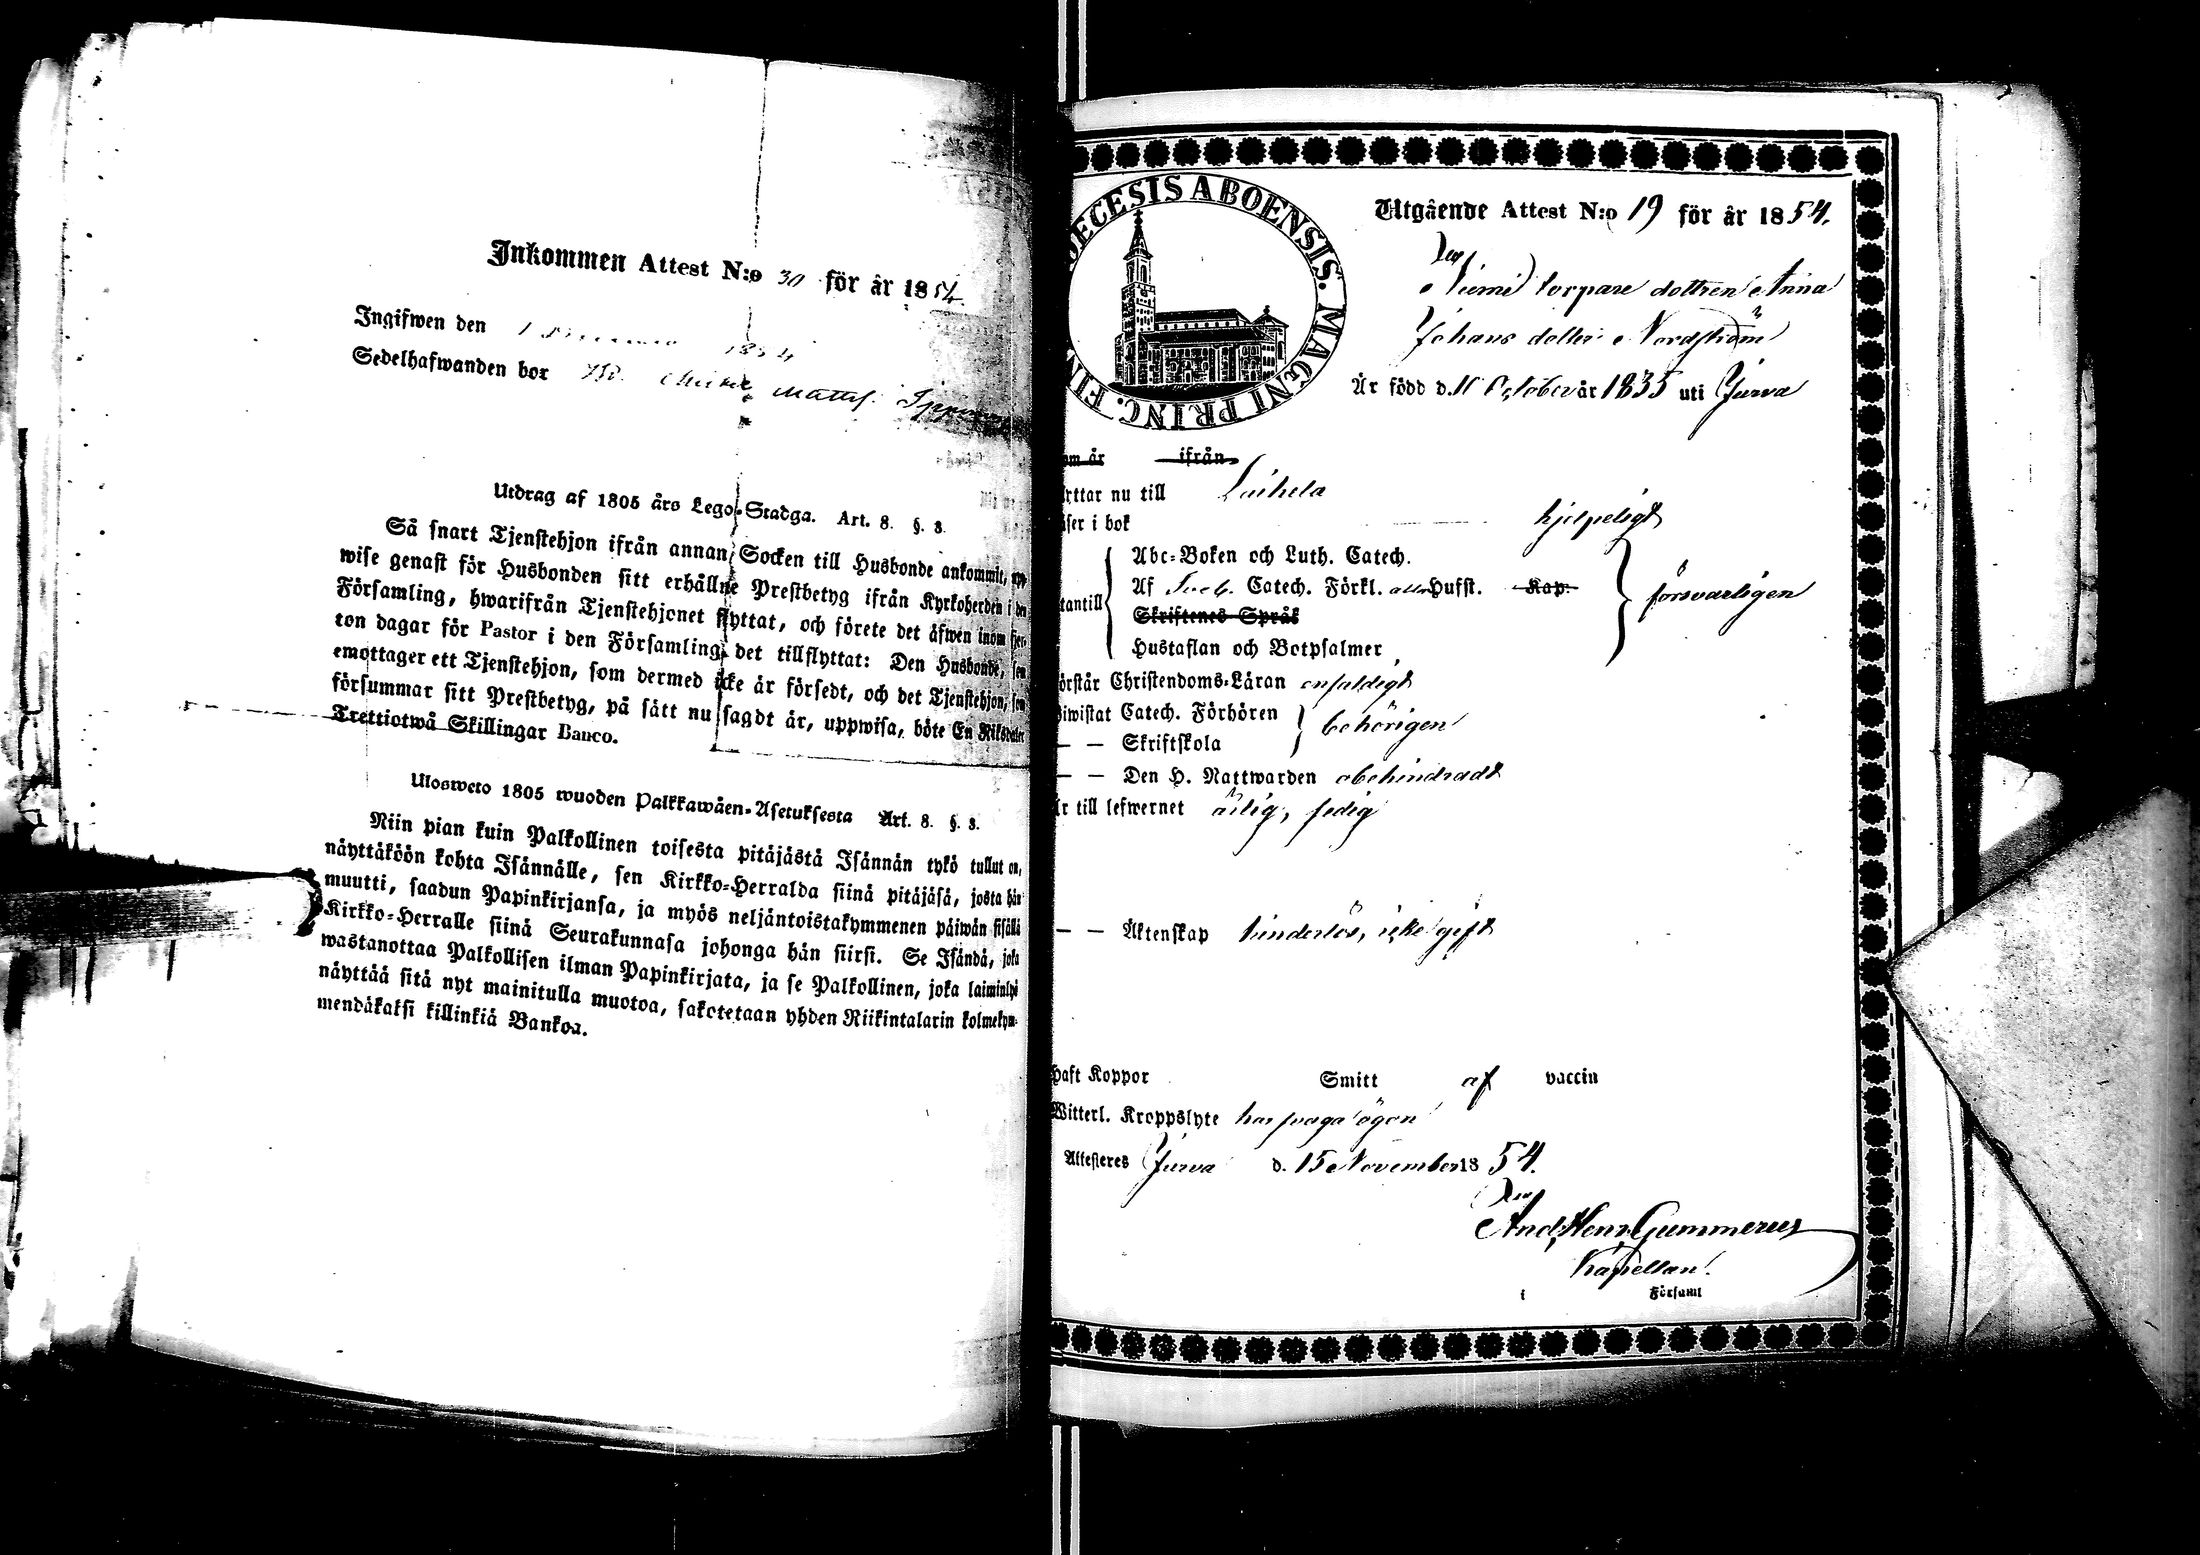 Inkommen Attest N:o 30 för år 1854.
Ingifwen den 1 1854
Sedelhafwanden bor Matts.
Utdrag af 1805 års Lego-Stadga. Art. 8. §. 8.
Så snart Tjenstehjon ifrån annan Socken till Husbonde ankommit,
wise genast för Husbonden sitt erhållne Prestbetyg ifrån Kyrkoherden i den
Församling, hwarifrån Tjenstehjonet flyttat, och förete det äfwen inom fjor-
ton dagar för Pastor i den Församling, det tillflyttat: Den Husbonde, som
emottager ett Tjenstehjon, som dermed icke är försedt, och det Tjenstehjon, som
försummar sitt Prestbetyg, på sätt nu sagdt är, uppwisa, böte En Riksdaler
Trettiotwå Skillingar Banco.
Ulosweto 1805 wuoden Palkkawäen-Asetuksesta Art. 8. §. 8.
Niin pian kuin Palkollinen toisesta pitäjästä Isännän tykö tullut on,
näyttäköön kohta Isännälle, sen Kirkko-Herralda siinä pitäjäsä, josta hän
muutti, saadun Papinkirjansa, ja myös neljäntoistakymmenen päiwän sisällä
Kirkko-Herralle siinä Seurakunnasa johonga hän siirsi. Se Isändä, joka
wastanottaa Palkollisen ilman Papinkirjata, ja se Palkollinen, joka laiminlyö
näyttää sitä nyt mainitulla muotoa, sakotetaan yhden Riikintalarin kolmekym-
mendäkaksi killinkiä Bankoa.
DIOECESIS ABOENSIS. MAGNI PRINC. FIN
Utgående Attest N:o 19 för år 1854.
Niemi torpare dottren Anna
Johans dotter Nordström
Är född d. 11 October år 1835 uti Jurva
om är ifrån
yttar nu till Laihela
äser i bok hjelpeligt
Abc-Boken och Luth. Catech.
tantill Af Sveb. Catech. Förkl. alla Hufst. Kap. försvarligen
Skriftenes Språk
Hustaflan och Botpsalmer
örstår Christendoms-Läran enfaldigt
iwistat Catech. Förhören behörigen
— — Skriftskola
— — Den H. Nattwarden obehindradt
Är till lefwernet ärlig, sedig
— — Äktenskap hinderlös, icke gift
Haft Koppor Smitt af vaccin
Witterl. Kroppslyte har svaga ögon
Attesteres Jurva d. 15 November 1854.
And. Henr. Gummerus
Kapellan.
i Församl